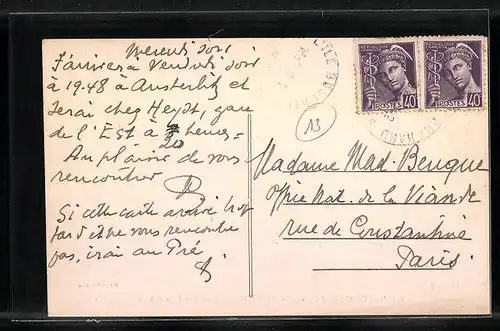 Mercredi soir
J'arriverai Vendredi soir
à 19.48 à Austerlitz et
serai chez Heydt, gare
de l'Est à 20 heures =
Au plaisir de vous
rencontrer
R
Si cette carte arrive trop
tard et ne vous rencontre
pas, irai au Pré
13
Madame Mad. Benque
Office Nat. de la Viande
rue de Constantine
Paris.
POSTES 40
POSTES 40